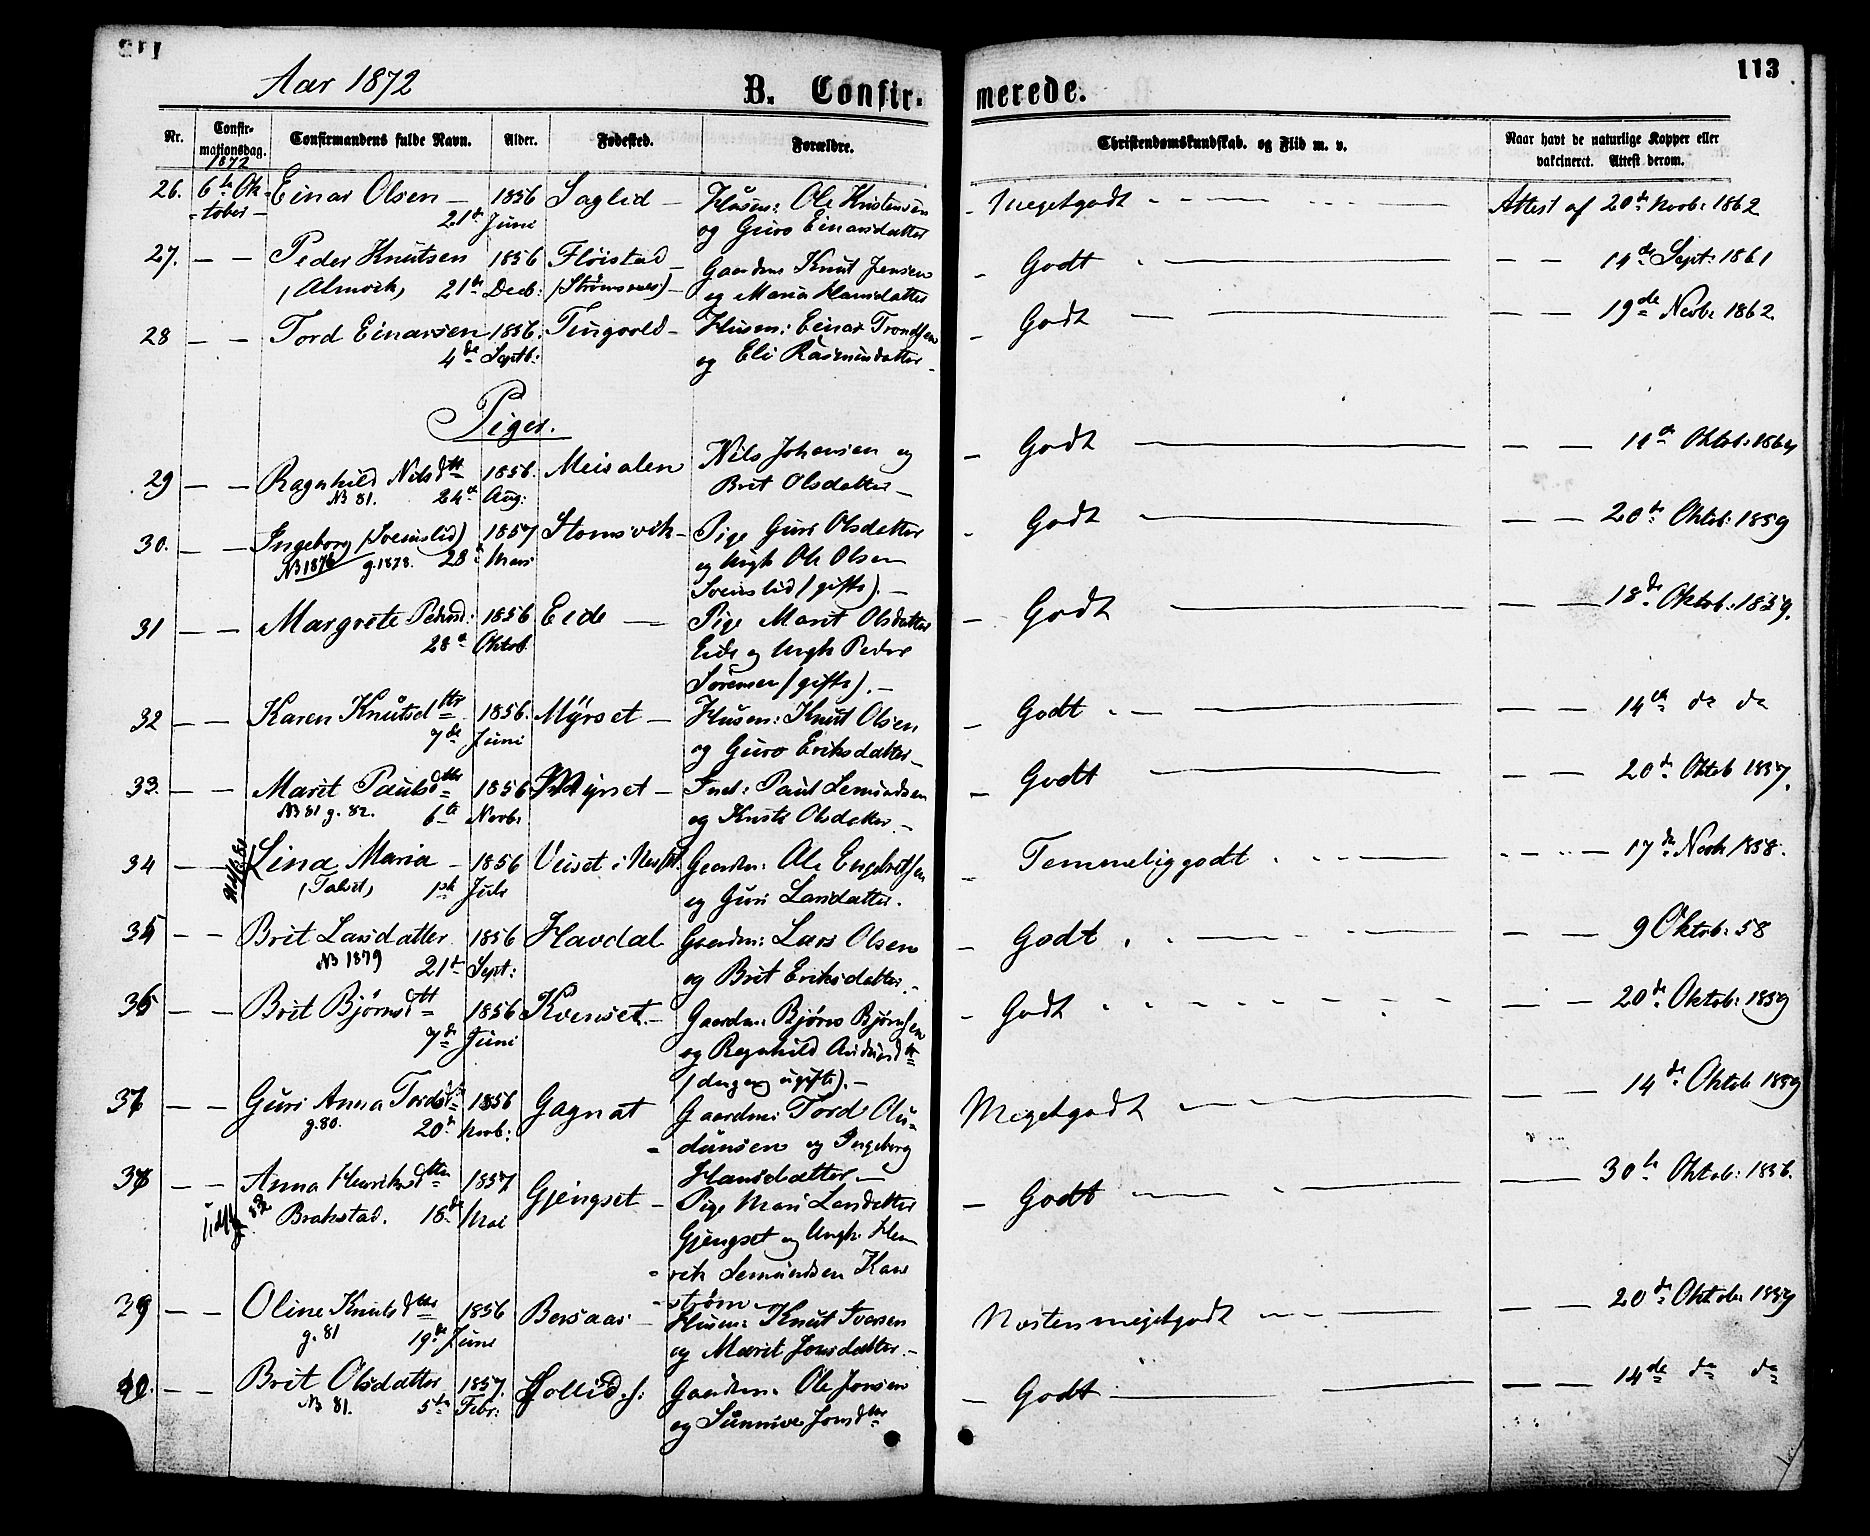 Aar 1872
B. Confirmerede.
113
Nr. Confirmationsdag. Confirmandens fulde Navn. Alder. Fødested. Forældre. Christendomskundskab, og Flid m. v. Naar havt de naturlige Kopper eller vakcineret. Attest derom.
1872
26. 6te Ok- Einar Olsen – 1856 Saglid – Husm: Ole Kristensen – Megetgodt – Attest af 20de Novb: 1862
tober – 21de Juni og Guro Einarsdatter
27. – – Peder Knutsen 1856 Fløistad – Gaardm: Knut Jensen – Godt – – 14de Sept: 1861
(Almoek) 21de Decb: (Strømsnes) – og Maria Hansdatter
28 – – Tord Einarsen 1856. Tingvold – Husm: Einar Trondsen – Godt – – 19de Novb: 1862.
4de Septb: og Eli Rasmusdatter –
Piger.
29 – – Ragnhild Nilsdtt 1856. Meisalen Nils Johansen og – Godt – – 14de Oktob: 1864
NB 81. 24de Aug: Brit Olsdatter –
30. – – Ingeborg (Sveinslid) 1857 Stomsvik – Pige Guri Olsdatter – Godt – – 20de Oktob: 1859
NB 1876 g. 1878. 28 Mars og Ungk Ole Olsen
Sveinslid (gifte). –
31 – – Margrete Pedersd: 1856 Eide – Pige Marit Olsdatter – Godt – – 18de Oktob: 1859.
28de Oktob. Eide og Ungk Peder
Sørensen (gifte). –
32 – – Karen Knutsdttr 1856. Myrset – Husm: Knut Olsen – Godt – – 14de do do
7de Juni og Guro Eriksdatter –
33. – – Marit Paulsdttr 1856 Myrset – Ind: Paul Semundsen – Godt – – 20de Oktob 1857.
NB 81 g. 82. 6te Novb: og Kirsti Olsdatter –
34 – – Lina Maria – 1856 Gaardm: Ole Engebretsen – Temmeliggodt – 17de Novb 1858.
1ste Juli og Guri Larsdatter.
35 – – Brit Larsdatter 1856 Havdal Gaardm: Lars Olsen – Godt – – 9 Oktob: 58
NB 1879 21de Sept: og Brit Eriksdatter –
36 – – Brit Bjørnsdtt 1856 Kvenset – Gaardm: Bjørn Bjørnsen – Godt – – 20de Oktob: 1859
7de Juni og Ragnhild
– 37 – – Guri Anna Tordsd 1856 Gagnat Gaardm: Tord Au- Megetgodt – – 14de Oktob 1859
g. 80. 20de Novb: dunsen og Ingeborg
Hansdatter –
38 – – Anna Henriksdtter 1857 Gjengset – Pige Mari Larsdatter – Godt – 30te Oktob: 1856.
Brakstad. 18de Mai Gjengset og Ungk. Hen
rik Semundsen Kav
strøm –
39 – – Oline Knutsdttr 1856 Bersaas – Husm: Knut Iversen Næstenmegetgodt – – 20de Oktob: 1859
g. 81 19de Juni og Marit Jonsdatter –
40. – – Brit Olsdatter 1857. Gaardm: Ole Jonsen – Godt – – 14de do do
NB 81. 5te Febr: og Sunnive Jonsdttr